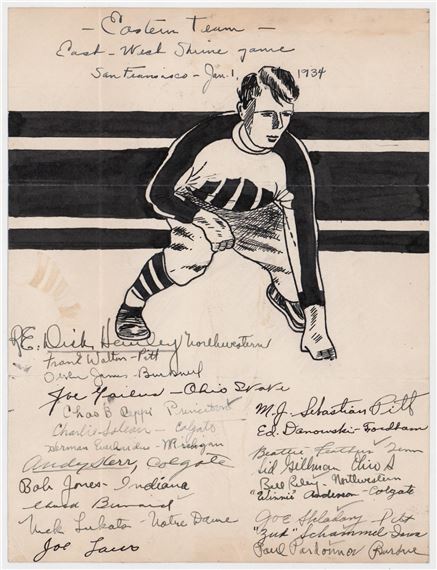 — Eastern Team —
East - West Shrine game
San Francisco - Jan. 1, 1934
RE: Dick Northwestern
Frank Walton - Pitt
Owen James - Bucknell
Joe - Ohio State
Chas B Ceppi Princeton
Charlie Soleau - Colgate
Herman Everhardus - Michigan
Andy Kerr, Colgate
Bob Jones - Indiana
Chuck Bernard
Nick Lukats - Notre Dame
Joe Laws
M.J. Sebastian Pitt
Ed. Danowski - Fordham
Beattie Feathers Tenn
Sid Gillman Ohio S
Bill Riley - Northwestern
"Winnie" Anderson - Colgate
Joe Skladany - Pitt
"Zud" Schammel Iowa
Paul Pardonner Purdue